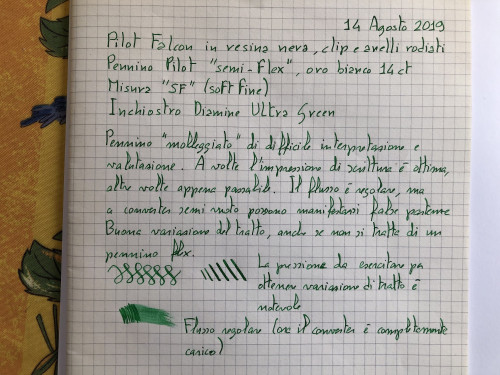 14 Agosto 2019
Pilot Falcon in resina nera, clip e anelli rodiati
Pennino Pilot "semi-flex", oro bianco 14 ct
Misura "SF" (soft fine)
Inchiostro Diamine Ultra Green
Pennino "molleggiato" di difficile interpretazione e
valutazione. A volte l'impressione di scrittura è ottima,
altre volte appena passabile. Il flusso è regolare, ma
a converter semi vuoto possono manifestarsi false partenze
Buona variazione del tratto, anche se non si tratta di un
pennino flex.
La pressione da esercitare per
ottenere variazioni di tratto è
notevole
Flusso regolare (ora il converter è completamente
carico)